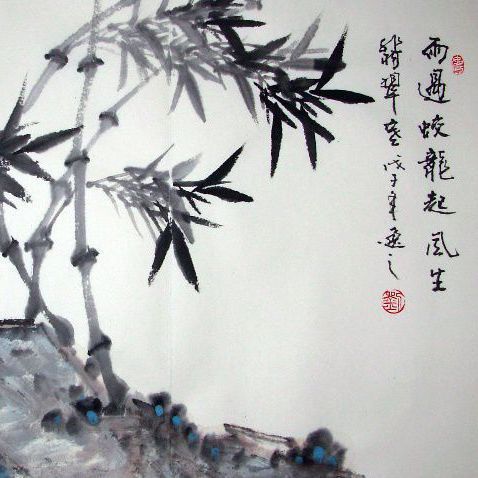 雨過蛟龍起風生
翡翠寒戊子年之